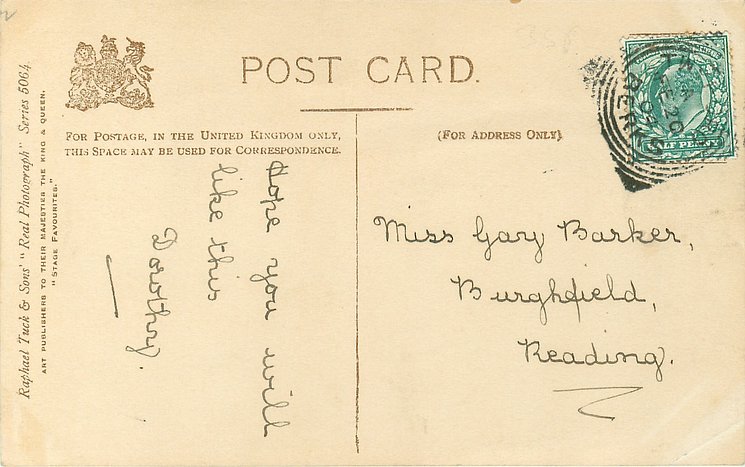 POST CARD.
FOR POSTAGE, IN THE UNITED KINGDOM ONLY,
THIS SPACE MAY BE USED FOR CORRESPONDENCE.
(FOR ADDRESS ONLY)
Raphael Tuck & Sons' "Real Photograph" Series 5064.
ART PUBLISHERS TO THEIR MAJESTIES THE KING & QUEEN.
"STAGE FAVOURITES."
Hope you will
like this
Dorothy.
Miss Gary Barker,
Burghfield,
Reading.
HALF PENNY
BERKS